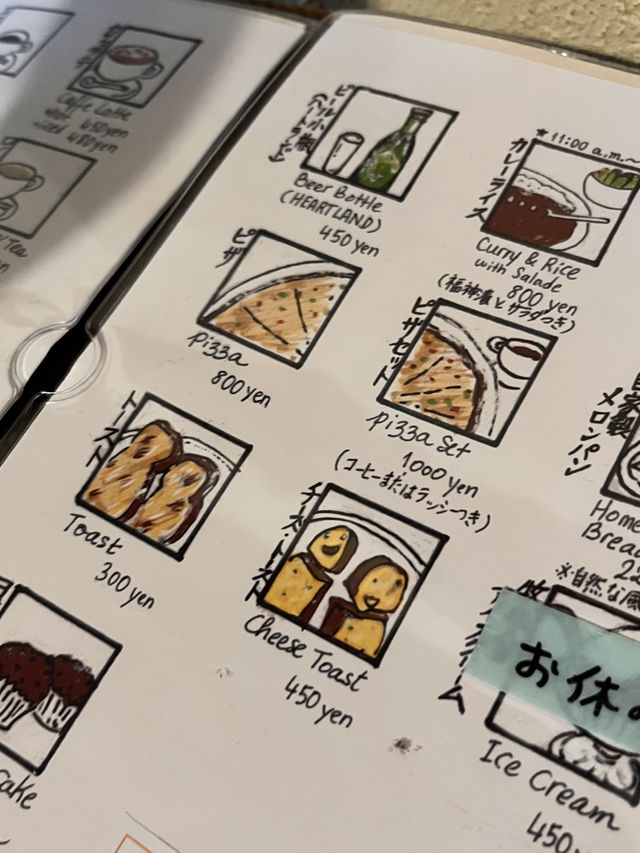 Caffe Latte
・Hot 450yen
・iced 480yen
Tea
ビール小瓶
(ハートランド)
Beer Bottle
(HEARTLAND)
450 yen
★11:00 a.m.〜
カレーライス
Curry & Rice
with Salade
800 yen
(福神漬とサラダつき)
ピザ
pizza
800 yen
ピザセット
pizza set
1000 yen
(コーヒーまたはラッシーつき)
自家製
メロンパン
Home
Brea
トースト
Toast
300 yen
チーズ・トースト
Cheese Toast
450 yen
※自然な風
アイスクリーム
お休み
Ice Cream
450
Cake